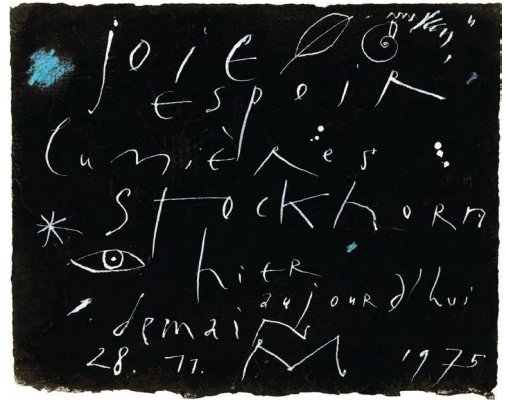 joie
espoir
lumières
Stockhorn
hier
aujourd'hui
demain
28. 11. 1975